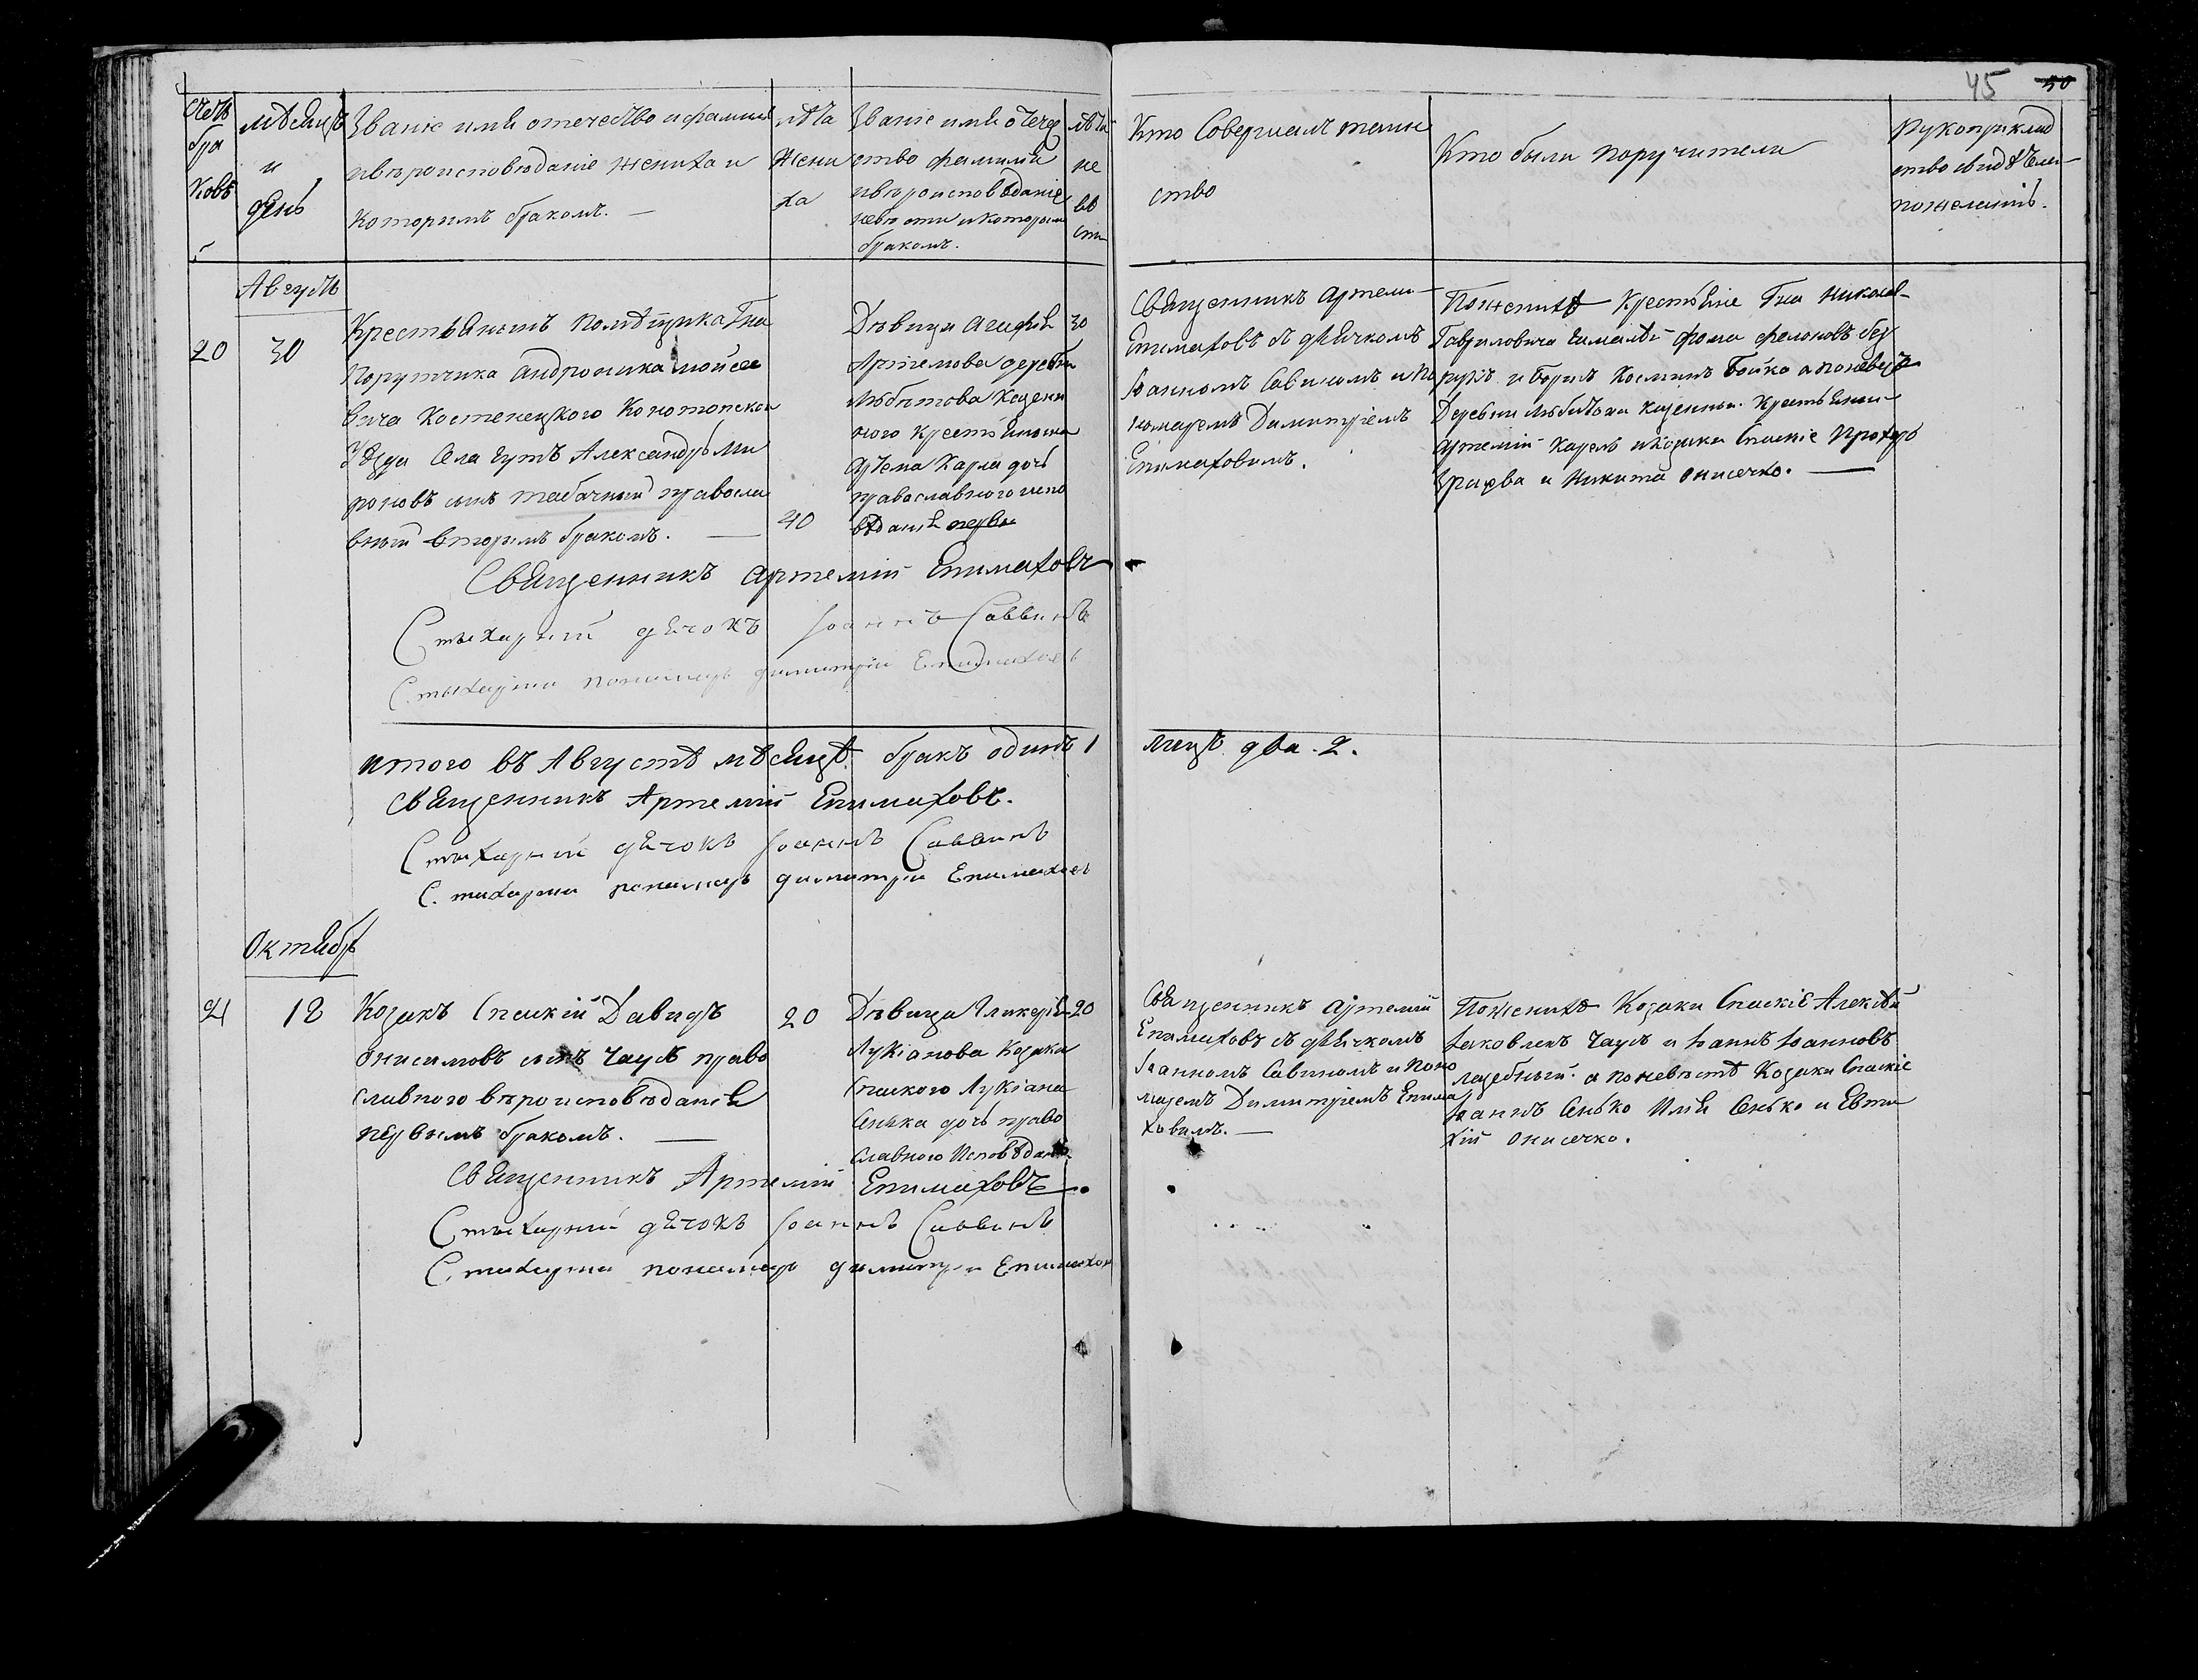 45 50
Счетъ
бра
ковъ
мѣсяцъ
и
день
Званіе имя отечество и фамилія
ивѣроисповѣданіе жениха и
которимъ бракомъ. —
лѣта
жени
ха
Званіе имя отече
ство фамилія
ивѣроисповѣданіе
невѣсти икоторым
бракомъ.
лѣта
не
вѣ
сти
Кто Совершалъ таин
ство
Кто были поручители
Рукоприклад
ство свидѣтелей
пожеланію.
Августъ
20
30
Крестьянинъ помѣщика Гна
Порутчика Андроника Мойсее
вича Костенецкого Конотопского
Уѣзда Села Гутъ Александръ Ми
роновъ сынъ Табачный правосла
вный вторимъ бракомъ. —
40
Дѣвица Агафія
Артемова деревни
Любитова Казенн
ного крестьянина
Артема Карпа дочь
православного испо
вѣданія первы
30
Священникъ Артемій
Епимаховъ съ дьячкомъ
Іоанномъ Савиномъ и по
номаремъ Димитріемъ
Епимаховимъ.
Поженихѣ Крестьяне Гна Николая
Гавриловича
рукъ и Борисъ Косминъ Бойко а поневѣстѣ
Деревни Любитова казенныи Крестьянин
Артемій Карпъ и Козаки Спаскіе Прохоръ
и Никита Онисечко. —
Священникъ Артемій Епимаховъ
Стыхарній дячокъ Іоаннъ Саввинъ
Стыхарни пономарь Димитрій Епимахов
итого въ Августѣ мѣсяцѣ бракъ одинъ 1
лицъ два. 2.
Священникъ Артемій Епимаховъ.
Стыхарній дячокъ Іоаннъ Саввинъ
Стихарни пономарь Димитрій Епимахов
Октябрь
21
18
Козакъ Спаскій Давидъ
Онисимовъ сынъ Чаусъ право
славного вѣроисповѣданія
первымъ бракомъ. —
20
Дѣвица Гликерія
Лукіанова Козака
Спаского Лукіана
Сенька дочь право
славного Исповѣдані
20
Священникъ Артемій
Епимаховъ съ дьячкомъ
Іоанномъ Савиномъ и поно
маремъ Димитріемъ Епима
ховимъ. —
Поженихѣ Козаки Спаскіе Алексѣй
Іаковлевъ Чаусъ и Іоаннъ Іоанновъ
а поневѣстѣ Козаки Спаскіе
Іоаннъ Сенько Илія Сенько и Евти
хій Онисечко.
Священникъ Артемій Епимаховъ.
Стыхарній дячокъ Іоаннъ Саввинъ
Стихарни пономарь Димитри Епимахов